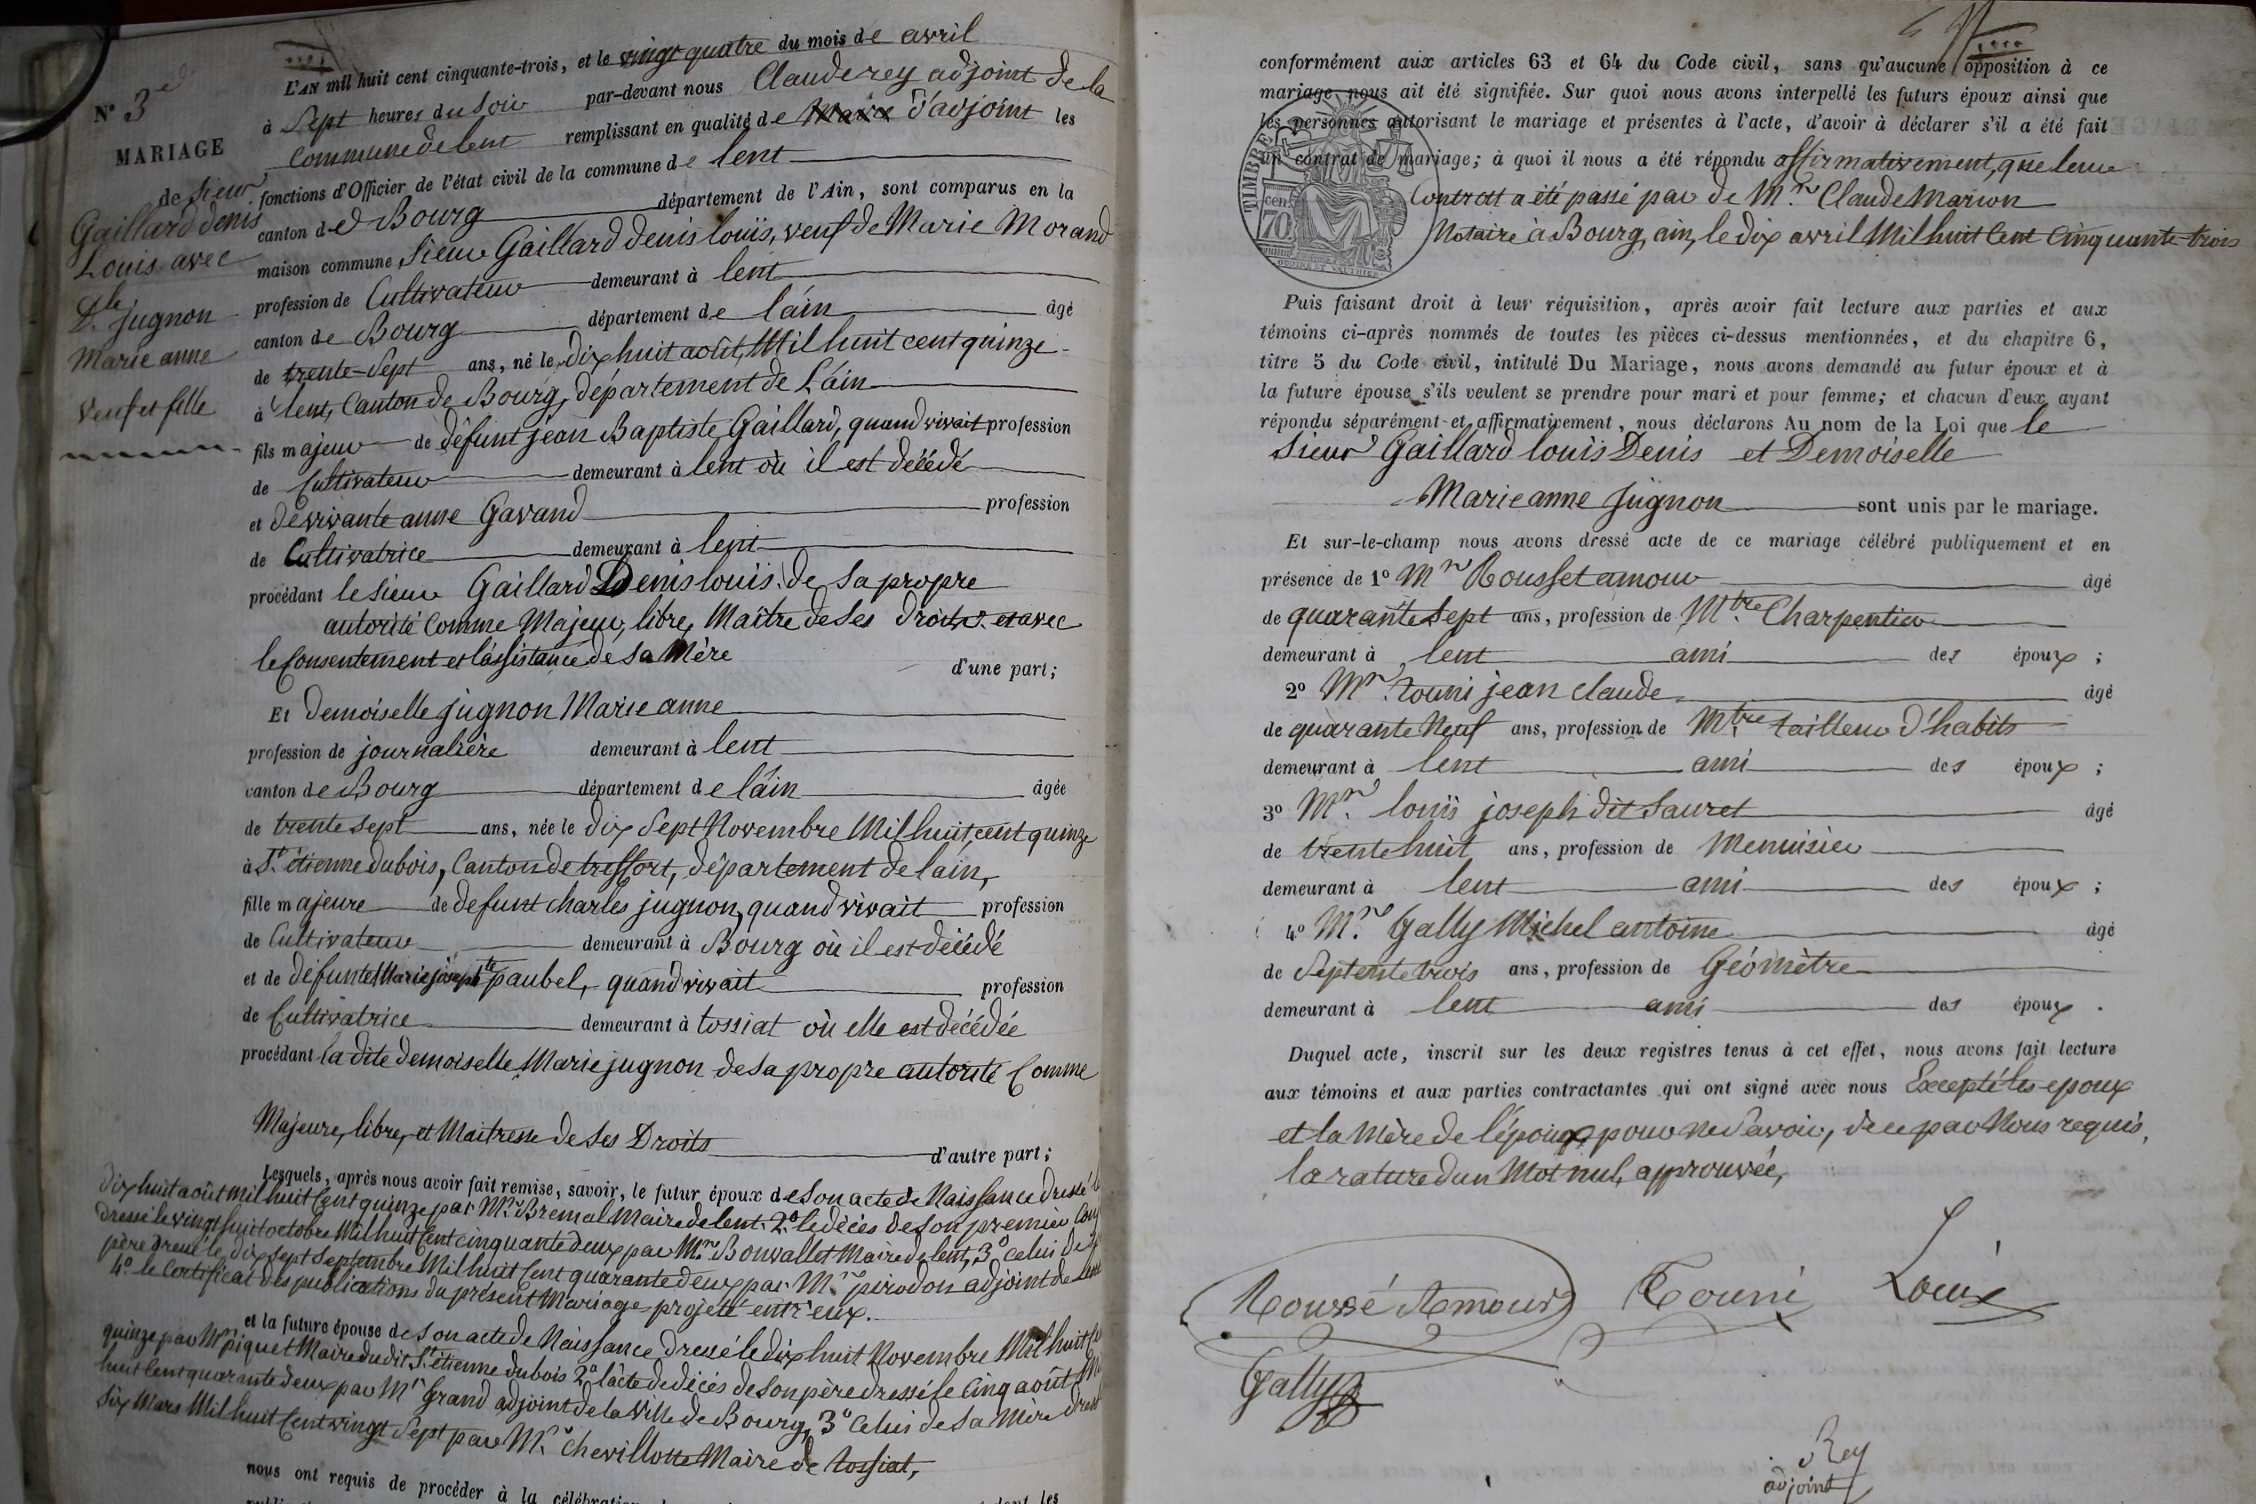 N° 3e
MARIAGE
de Sieur
Gaillard denis
Louis avec
Dlle Jugnon
Marie anne
veuf et fille
L'AN mil huit cent cinquante-trois, et le vingt quatre du mois de avril
à Sept heures du Soir par-devant nous Claude rey adjoint de la
Commune de lent remplissant en qualité de Maire d'adjoint les
fonctions d'Officier de l'état civil de la commune de lent
canton de Bourg département de l'Ain, sont comparus en la
maison commune Sieur Gaillard denis louis, veuf de Marie Morand
profession de Cultivateur demeurant à lent
canton de Bourg département de l'ain âgé
de trente-Sept ans, né le dix huit août, Mil huit cent quinze
à lent, Canton de Bourg, département de L'ain
fils majeur de défunt jean Baptiste Gaillard, quand vivait profession
de Cultivateur demeurant à lent où il est décédé
et de vivante anne Gavand profession
de Cultivatrice demeurant à lent
procédant le Sieur Gaillard Denis louis de Sa propre
autorité Comme Majeur, libre, Maître de Ses Droits, et avec
le Consentement et l'assistance de Sa Mère d'une part;
Et demoiselle jugnon Marie anne
profession de journalière demeurant à lent
canton de Bourg département de l'ain âgée
de trente sept ans, née le dix Sept Novembre Mil huit cent quinze
à St étienne dubois, Canton de treffort, département de l'ain,
fille majeure de defunt charles jugnon, quand vivait profession
de Cultivateur demeurant à Bourg où il est décédé
et de défunte Marie joseph te paubel, quand vivait profession
de Cultivatrice demeurant à tossiat où elle est décédée
procédant la dite demoiselle Marie jugnon de Sa propre autorité Comme
Majeure, libre, et Maitresse de Ses Droits d'autre part;
Lesquels, après nous avoir fait remise, savoir, le futur époux de Son acte de Naissance dressé le
dix huit août mil huit Cent quinze par Mr Bremal Maire de lent, 2° le décès de Son premier
dressé le vingt huit octobre Mil huit Cent cinquante deux par Mr Bonvallet Maire de lent, 3° celui de
père dressé le dix sept Septembre Mil huit Cent quarante deux par Mr pirodon adjoint de lent
4° le Certificat des publications du présent Mariage projeté entr'eux.
et la future épouse de Son acte de Naissance dressé le dix huit Novembre Mil huit
quinze par Mr piquet Maire du dit St étienne dubois 2° l'acte de décès de Son père dressé le Cinq août
huit Cent quarante deux par Mr Grand adjoint de la Ville de Bourg, 3° Celui de Sa Mère
Six Mars Mil huit Cent vingt Sept par Mr chevillotte Maire de tossiat,
nous ont requis de procéder à la
conformément aux articles 63 et 64 du Code civil, sans qu'aucune opposition à ce
mariage nous ait été signifiée. Sur quoi nous avons interpellé les futurs époux ainsi que
les personnes autorisant le mariage et présentes à l'acte, d'avoir à déclarer s'il a été fait
un contrat de mariage; à quoi il nous a été répondu affirmativement, que leur
Contrat a été passé par de Mre Claude Marion
Notaire à Bourg, ain, le dix avril Mil huit Cent Cinquante trois
TIMBRE
cen.
70
Puis faisant droit à leur réquisition, après avoir fait lecture aux parties et aux
témoins ci-après nommés de toutes les pièces ci-dessus mentionnées, et du chapitre 6,
titre 5 du Code civil, intitulé Du Mariage, nous avons demandé au futur époux et à
la future épouse s'ils veulent se prendre pour mari et pour femme; et chacun d'eux ayant
répondu séparément et affirmativement, nous déclarons Au nom de la Loi que le
Sieur Gaillard louis Denis et Demoiselle
Marie anne Jugnon sont unis par le mariage.
Et sur-le-champ nous avons dressé acte de ce mariage célébré publiquement et en
présence de 1° Mr Rousset amour âgé
de quarante Sept ans, profession de Mtre Charpentier
demeurant à lent ami des époux;
2° Mr touni jean claude âgé
de quarante Neuf ans, profession de Mtre tailleur d'habits
demeurant à lent ami des époux;
3° Mr louis joseph dit Sauret âgé
de trente huit ans, profession de Menuisier
demeurant à lent ami des époux;
4° Mr Gally Michel antoine âgé
de Septente trois ans, profession de Géomètre
demeurant à lent ami des époux.
Duquel acte, inscrit sur les deux registres tenus à cet effet, nous avons fait lecture
aux témoins et aux parties contractantes qui ont signé avec nous Excepté les epoux
et la Mère de l'époux pour ne Savoir, de ce par Nous requis,
la rature d'un Mot nul, approuvée,
Roussé Amour Touni Louis
Gally
Rey
adjoint